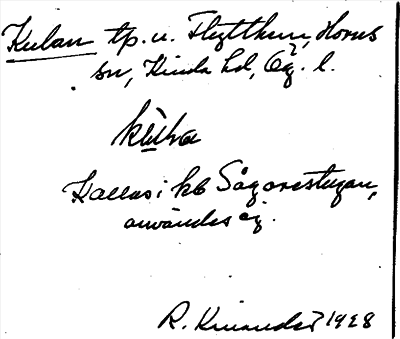 Kulan tp. u. Flytthem, Horns
sn, Kinda hd, Ög. l.
Kallas i kb Sågarestugan,
användes ej.
R. Kinander 1928